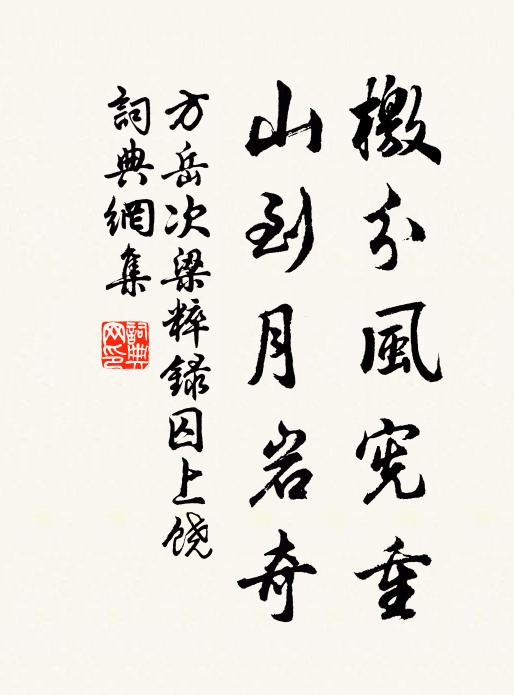 檄分風宪重
山到月岩奇
方岳次梁粹録囚上饶
詞典網集
詞典网印